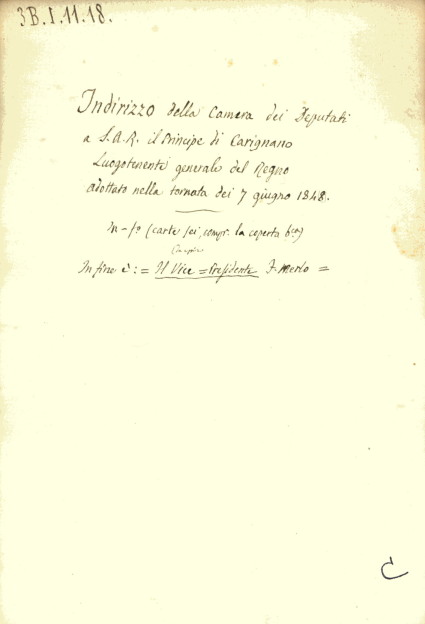 3B.I.11.18.
Indirizzo della Camera dei Deputati
a S.A.R. il Principe di Carignano
Luogotenente generale del Regno
adottato nella tornata dei 7 giugno 1848.
In-fo (carte sei, compr. la coperta bca)
In fine è: = Il Vice = Presidente F. Merlo =
C